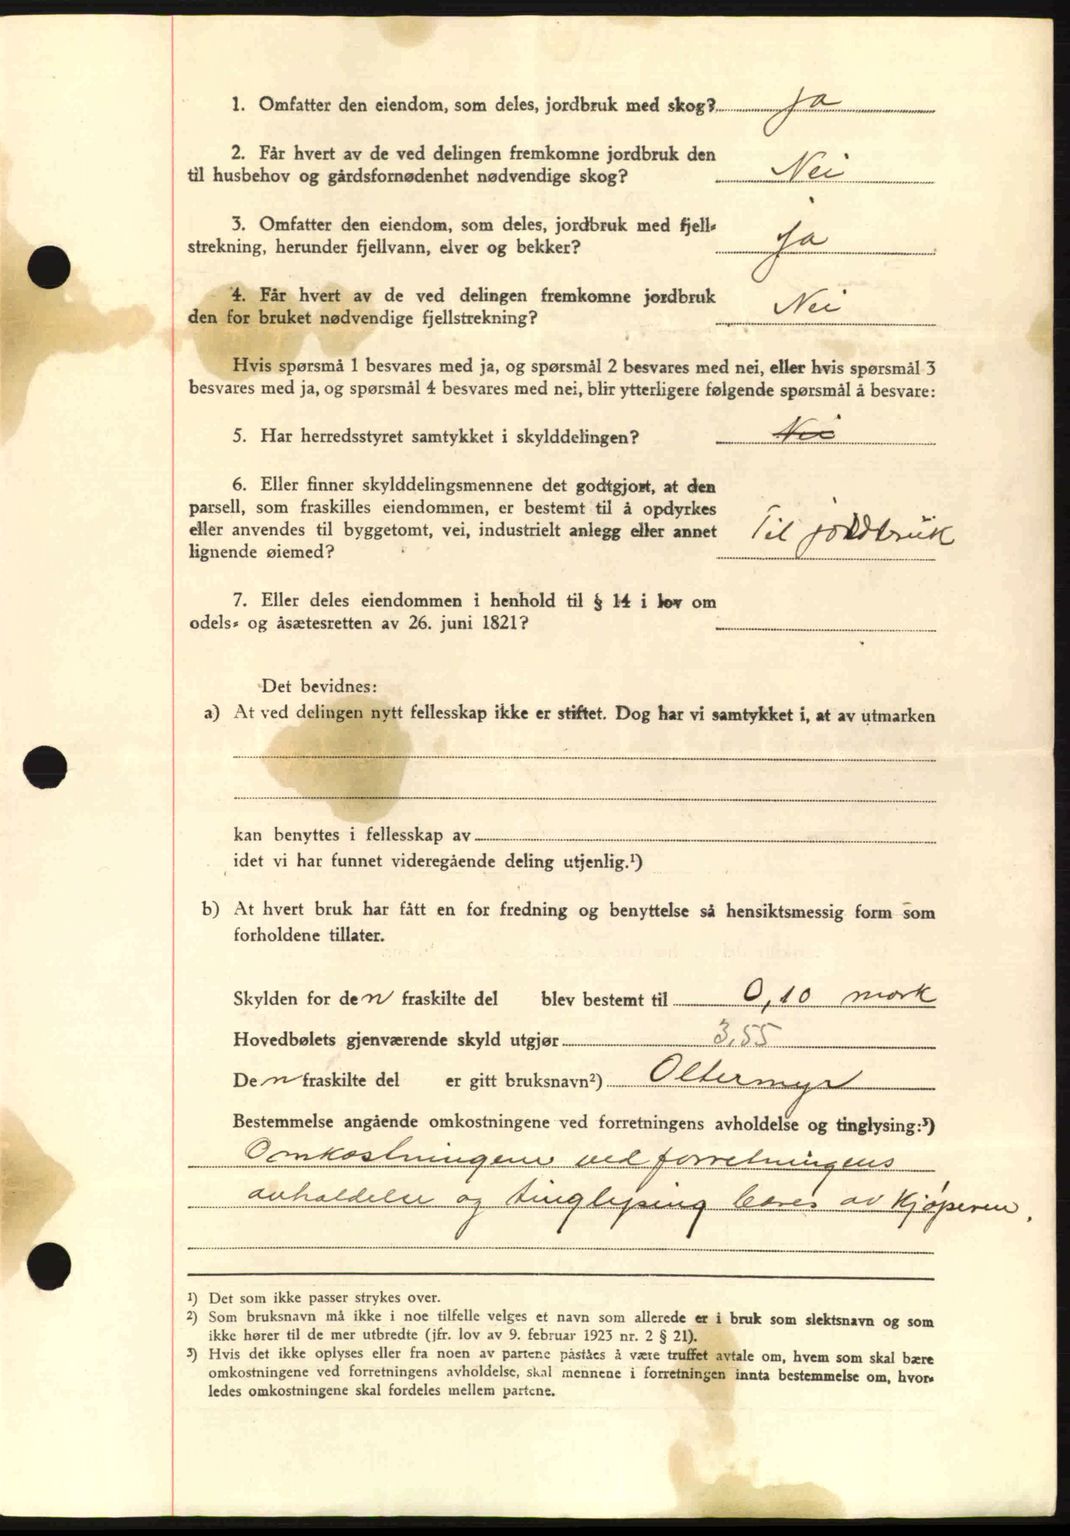 1. Omfatter den eiendom, som deles, jordbruk med skog? ja
2. Får hvert av de ved delingen fremkomne jordbruk den
til husbehov og gårdsfornødenhet nødvendige skog? Nei
3. Omfatter den eiendom, som deles, jordbruk med fjell-
strekning, herunder fjellvann, elver og bekker? ja
4. Får hvert av de ved delingen fremkomne jordbruk
den for bruket nødvendige fjellstrekning? Nei
Hvis spørsmå 1 besvares med ja, og spørsmål 2 besvares med nei, eller hvis spørsmål 3
besvares med ja, og spørsmål 4 besvares med nei, blir ytterligere følgende spørsmål å besvare:
5. Har herredsstyret samtykket i skylddelingen? Nei
6. Eller finner skylddelingsmennene det godtgjort, at den
parsell, som fraskilles eiendommen, er bestemt til å opdyrkes
eller anvendes til byggetomt, vei, industrielt anlegg eller annet Til jordbruk
lignende øiemed?
7. Eller deles eiendommen i henhold til § 14 i lov om
odels- og åsætesretten av 26. juni 1821?
Det bevidnes:
a) At ved delingen nytt fellesskap ikke er stiftet. Dog har vi samtykket i, at av utmarken
kan benyttes i fellesskap av
idet vi har funnet videregående deling utjenlig.¹)
b) At hvert bruk har fått en for fredning og benyttelse så hensiktsmessig form som
forholdene tillater.
Skylden for den fraskilte del blev bestemt til 0,10 mork
Hovedbølets gjenværende skyld utgjør 3,55
Den fraskilte del er gitt bruksnavn²) Oltermyr
Bestemmelse angående omkostningene ved forretningens avholdelse og tinglysing:³)
Omkostningene ved forretningens
avholdelse og tinglysing bæres av Kjøperen.
¹) Det som ikke passer strykes over.
²) Som bruksnavn må ikke i noe tilfelle velges et navn som allerede er i bruk som slektsnavn og som
ikke hører til de mer utbredte (jfr. lov av 9. februar 1923 nr. 2 § 21).
³) Hvis det ikke oplyses eller fra noen av partene påståes å være truffet avtale om, hvem som skal bære
omkostningene ved forretningens avholdelse, skal mennene i forretningen innta bestemmelse om, hvor-
ledes omkostningene skal fordeles mellem partene.